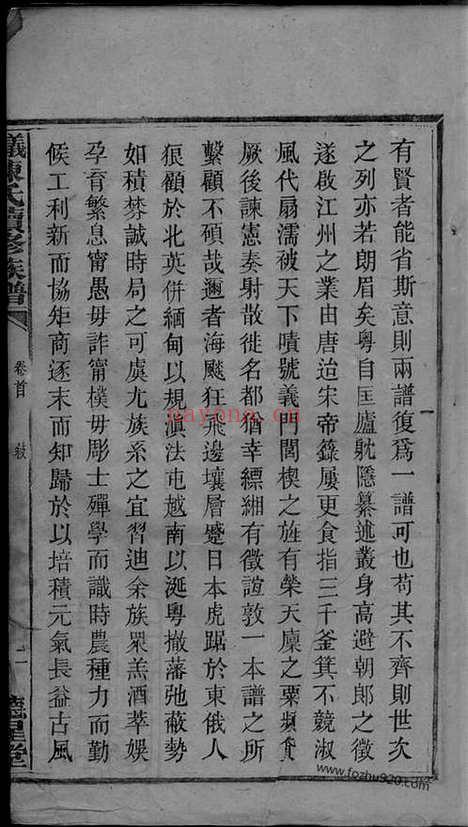 有賢者能省斯意則兩譜復爲一譜可也苟其不齊則世次
之列亦若朗眉矣粵自匡廬躭隱纂述叢身高避朝郎之徵
遂啟江州之業由唐迨宋帝籙屢更食指三千釜箕不競淑
風代扇濡被天下嘖號義門閭楔之旌有榮天廩之粟頻賫
厥後諫憲奏射散徙名都猶幸縹緗有徵誼敦一本譜之所
繫顧不碩哉邇者海颷狂飛邊壤層蹙日本虎踞於東俄人
狼顧於北英併緬甸以規滇法屯越南以涎粵撤藩弛蔽勢
如積棼誠時局之可虞尤族系之宜習迪余族眾羔酒萃娛
孕育繁息甯愚毋詐甯樸毋彫士殫學而識時農種力而勤
候工利新而協矩商逐末而知歸於以培積元氣長益古風
陳氏續修族譜
卷首
敍
二
德星堂
nayona.cn
www.fozhu920.com